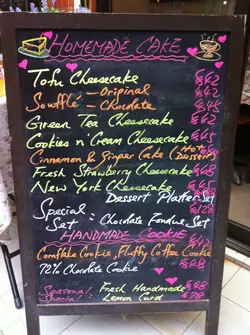 HOMEMADE CAKE
Tofu Cheesecake $42
Soufflé - Original $42
- Chocolate $45
Green Tea Cheesecake $42
Cookies n' Cream Cheesecake $45
Cinnamon & Ginger Cake (Hot Dessert)
Fresh Strawberry Cheesecake $48
New York Cheesecake $45
Dessert Platter Set
Special $128
Set : Chocolate Fondue Set
HANDMADE Cookie
Cornflake Cookie, Fluffy Coffee Cookie
72% Chocolate Cookie $68
Seasonal Fresh Handmade $68
Special: Lemon Curd